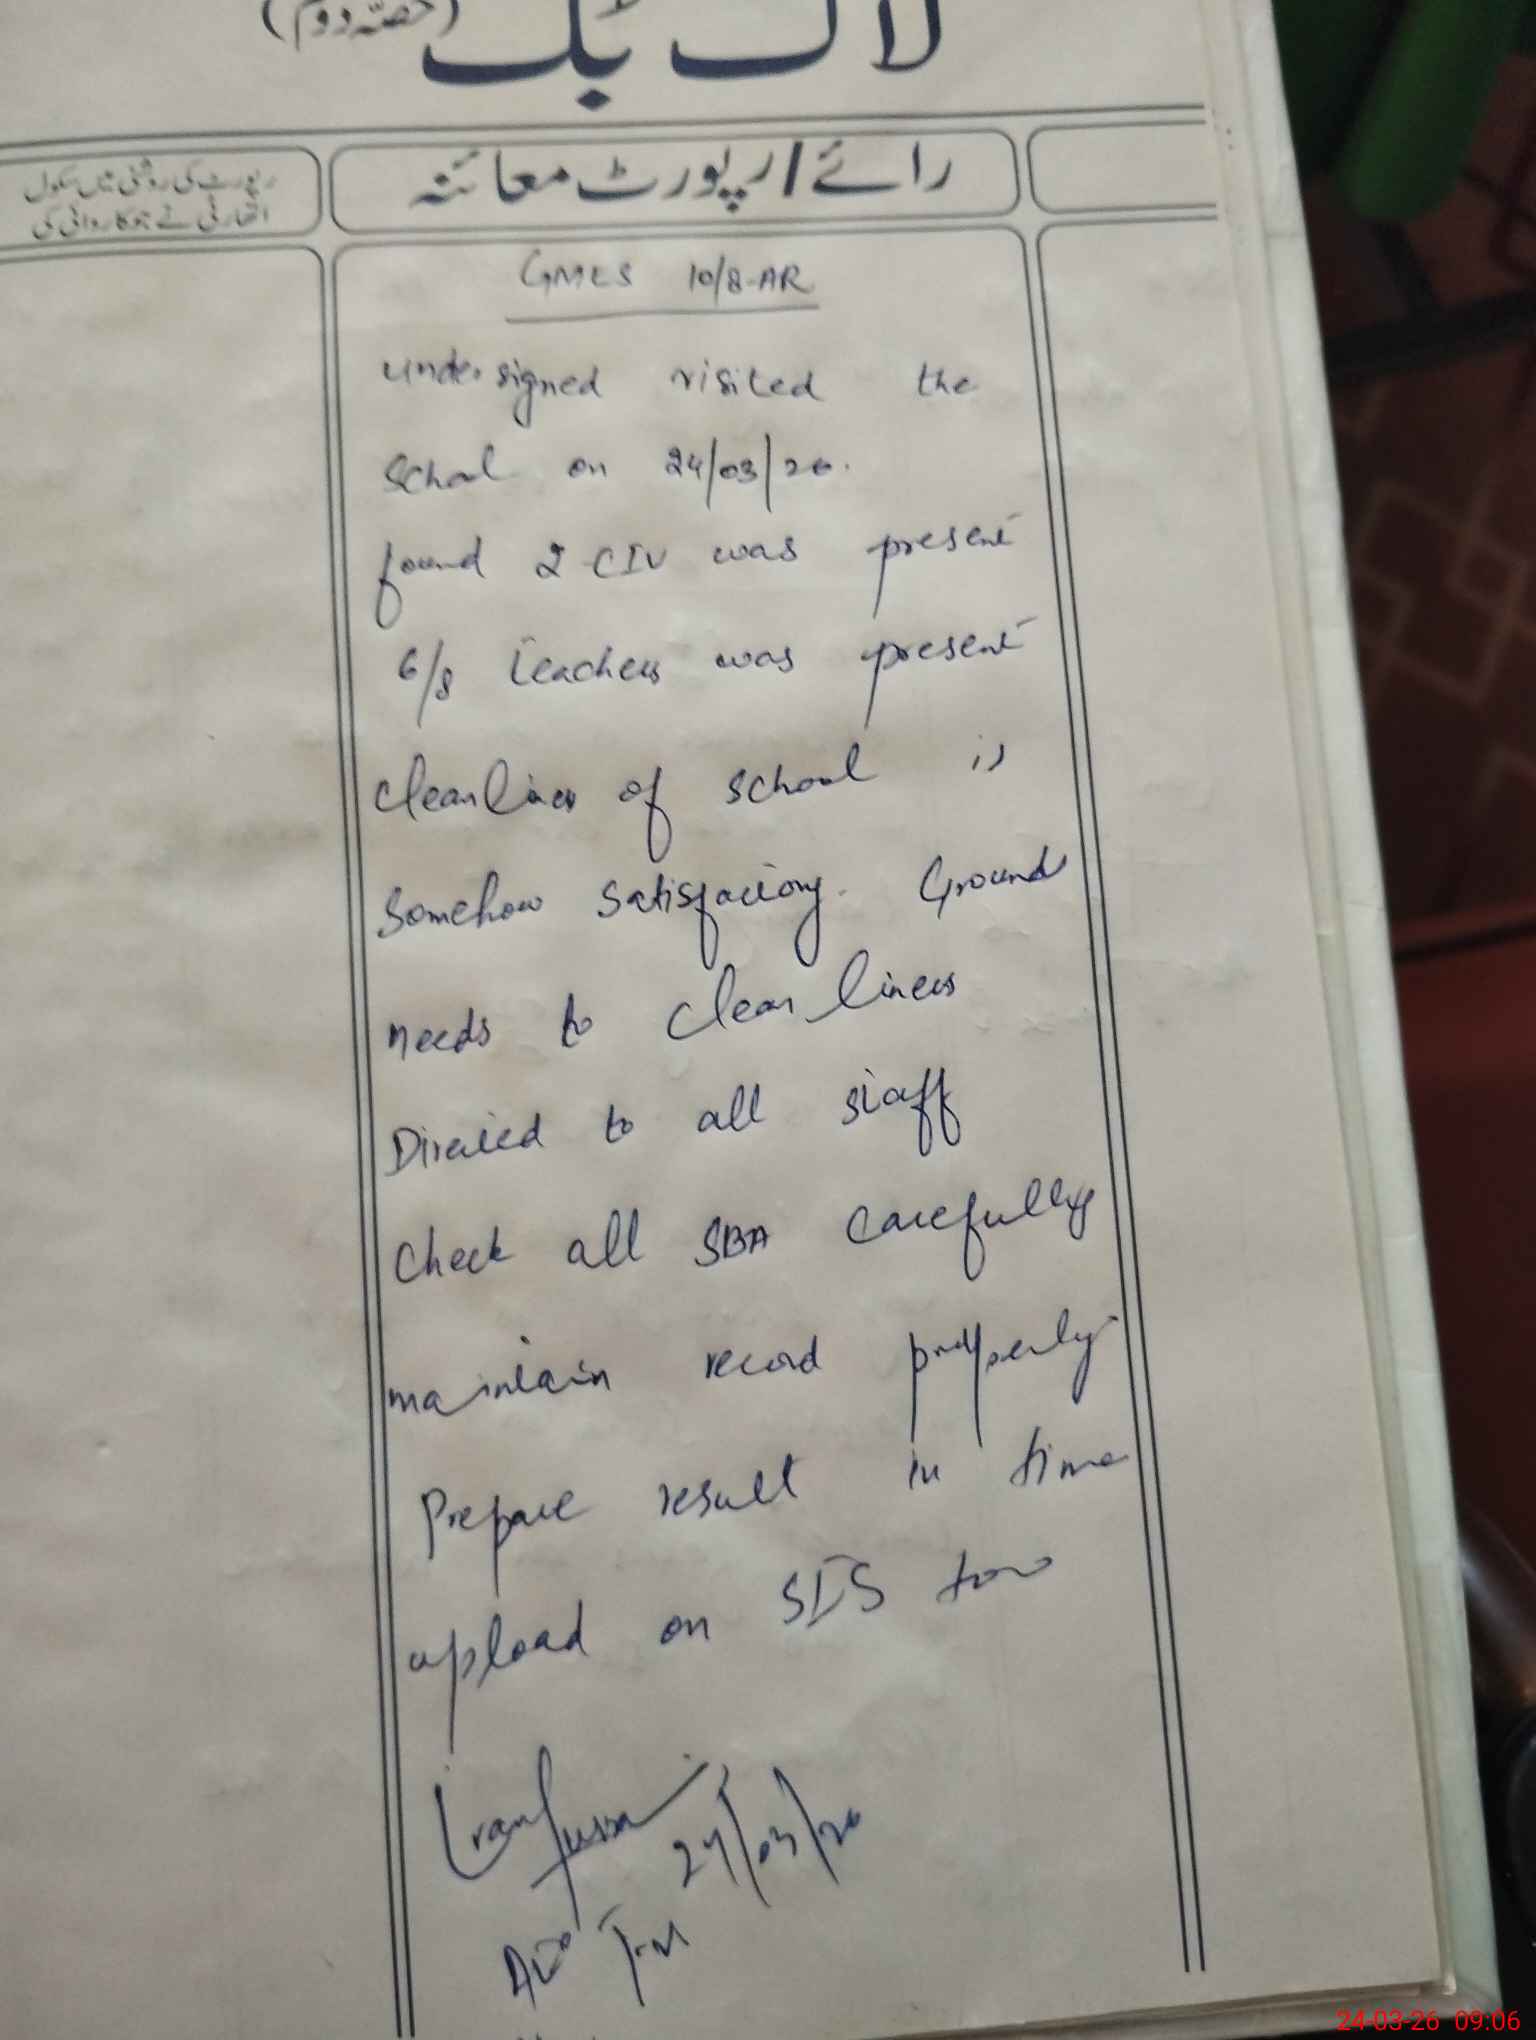 لاگ بک (حصّہ دوم)
رائے/رپورٹ معائنہ
رپورٹ کی روشنی میں سکول
اتھارٹی نے جو کاروائی کی
GMES 10/8-AR
undersigned visited the
School on 24/03/26.
found 2 CIV was present
6/8 teachers was present
cleanliness of school is
Somehow satisfactory. Ground
needs to cleanliness
Directed to all staff
Check all SBA carefully
maintain record properly
Prepare result in time
upload on SIS too
24/03/26
24-03-26 09:06